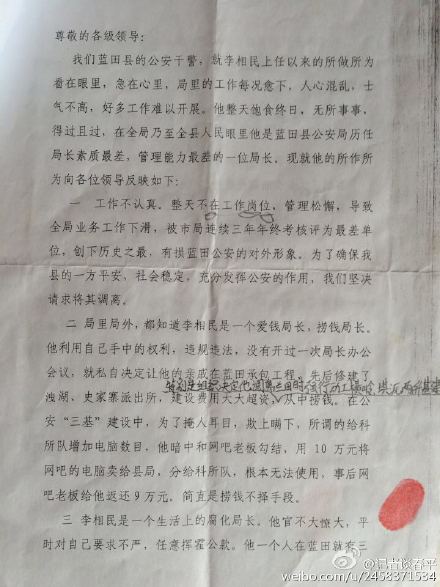 尊敬的各级领导：
我们蓝田县的公安干警，就李相民上任以来的所做所为
看在眼里，急在心里，局里的工作每况愈下，人心混乱，士
气不高，好多工作难以开展。他整天饱食终日，无所事事，
得过且过，在全局乃至全县人民眼里他是蓝田县公安局历任
局长素质最差，管理能力最差的一位局长。现就他的所作所
为向各位领导反映如下：
一 工作不认真。整天不在工作岗位，管理松懈，导致
全局业务工作下滑，被市局连续三年年终考核评为最差单
位，创下历史之最，有损蓝田公安的对外形象。为了确保我
县的一方平安，社会稳定，充分发挥公安的作用，我们坚决
请求将其调离。
二 局里局外，都知道李相民是一个爱钱局长，捞钱局长。
他利用自己手中的权利，违规违法，没有开过一次局长办公
会议，就私自决定让他的亲戚在蓝田承包工程，先后修建了
洩湖、史家寨派出所，建设费用大大超资，从中捞钱。在公
安“三基”建设中，为了掩人耳目，欺上瞒下，所谓的给科
所队增加电脑数目，他暗中和网吧老板勾结，用 10 万元将
网吧的电脑卖给县局，分给科所队，根本无法使用，事后网
吧老板给他返还 9 万元，简直是捞钱不择手段。
三 李相民是一个生活上的腐化局长。他官不大憭大，平
时对自己要求不严，任意挥霍公款。他一个人在蓝田就有三
@记者谈春平
weibo.com/u/2458371534